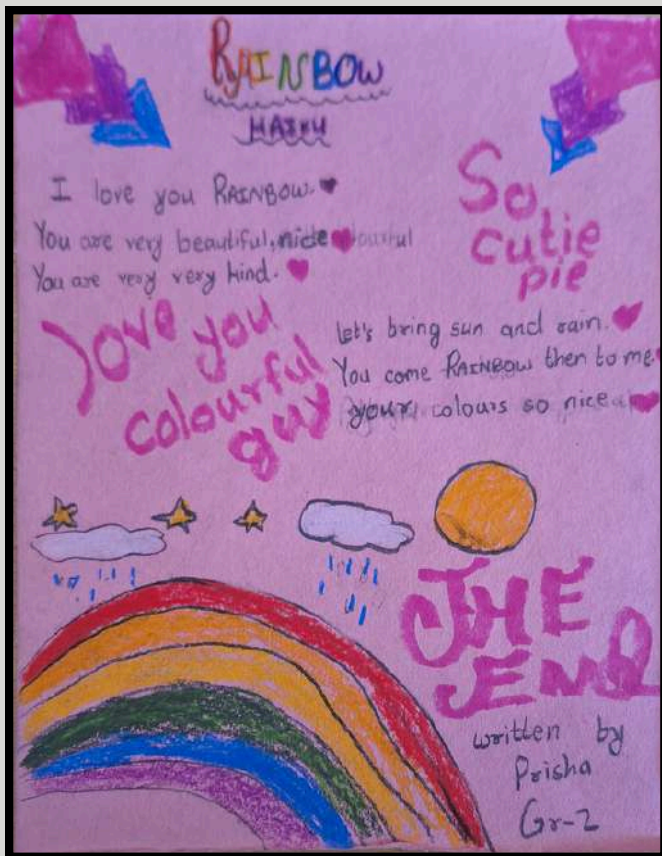 RAINBOW
HAIKU
I love you RAINBOW.
You are very beautiful, nice
You are very very kind.
So
cutie
pie
love you
colourful
guy
Let's bring sun and rain.
You come RAINBOW then to me
your colours so nice
THE
END
written by
Prisha
Gr-2